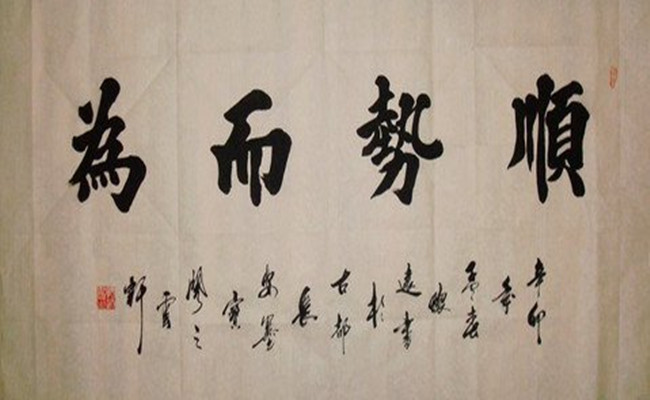 順勢而為
辛卯年孟春遠書於古都長安墨寶之軒